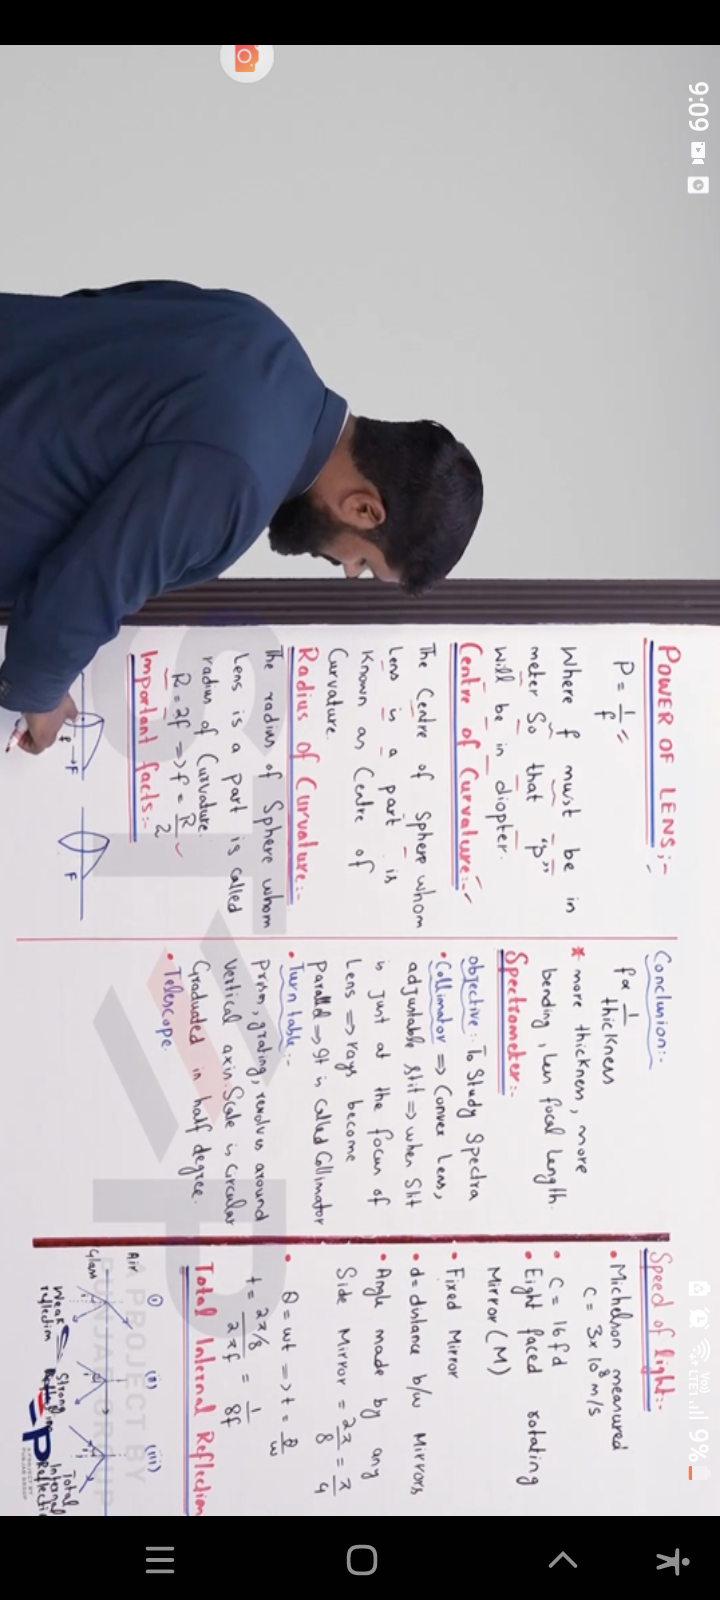 9:09
Vo)) LTE1 9%
POWER OF LENS:-
P = 1/f
Where f must be in
meter So that "p"
will be in diopter.
Centre of Curvature:-
The Centre of Sphere whom
Lens is a part is
Known as Centre of
Curvature.
Radius of Curvature:-
The radius of Sphere whom
Lens is a part is called
radius of Curvature.
R = 2f => f = R/2
Important facts:-
f F
F
Conclusion:-
f ∝ 1/thickness
* more thickness, more
bending, less focal length.
Spectrometer:-
objective:- To Study Spectra
• Collimator => Convex Lens,
adjustable slit => when Slit
is just at the focus of
Lens => rays become
Parallel => It is called Collimator
• Turn table:-
Prism, grating, revolves around
vertical axis. Scale is circular
Graduated in half degree.
• Telescope.
Speed of light:-
• Michelson measured
C = 3x10⁸ m/s
• C = 16fd
• Eight faced rotating
Mirror (M)
• Fixed Mirror
• d = distance b/w Mirrors
• Angle made by any
Side Mirror = 2π/8 = π/4
• θ = wt => t = θ/w
t = 2π/8 / 2πf = 1/8f
Total Internal Reflection
(i) (ii) (iii)
Air
Glass
i i i
Weak reflection
Strong
Total Internal Reflection
STEP
A PROJECT BY
PUNJAB GROUP